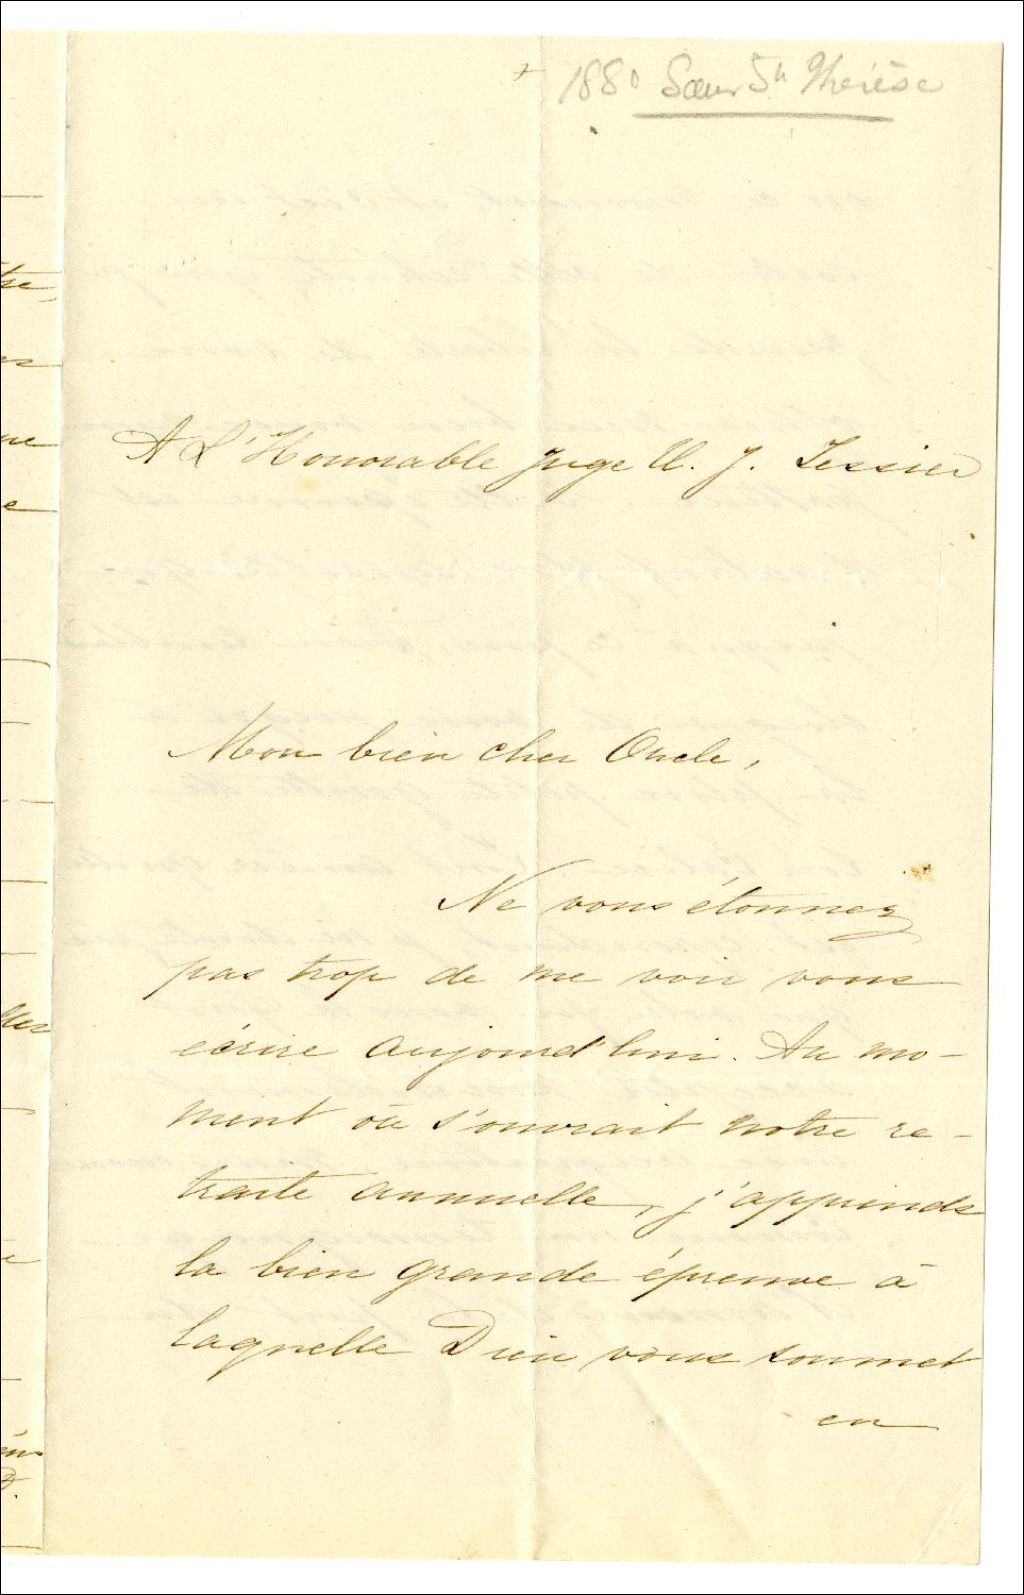 1880 Sœur Ste Thérèse
A L'Honorable Juge U. J. Tessier
Mon bien cher Oncle,
Ne vous étonnez
pas trop de me voir vous
écrire aujourd'hui. Au mo-
ment où s'ouvrait notre re-
traite annuelle, j'apprends
la bien grande épreuve à
laquelle Dieu vous soumet
en